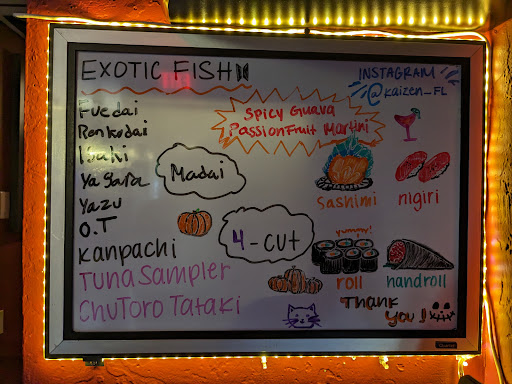 EXOTIC FISH
INSTAGRAM
@KAIZEN_FL
Fuedai
Renkodai
Isaki
Yagara
Yazu
O.T
Kanpachi
Tuna Sampler
ChuToro Tataki
Spicy Guava
Passion Fruit Martini
Madai
4-cut
sashimi
nigiri
yummy!
roll
handroll
THANK
You!
Quartet